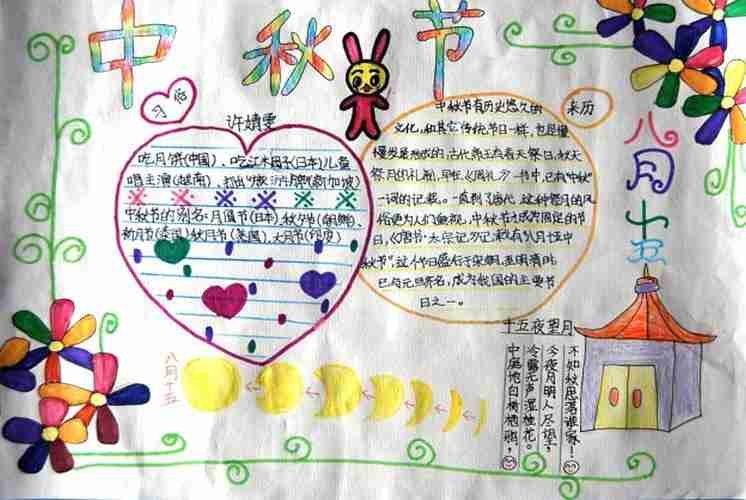 中秋节
习俗
许婧雯
吃月饼(中国)、吃江米团子(日本)儿童
唱主演(越南)、
中秋节的别名:月圆节(日本)秋夕节(朝鲜)、
月节(泰国)秋月节(美国)、大月节(印度)
来历
中秋节有历史悠久的
文化,和其它传统节日一样,也是慢
慢发展形成的,古代帝王春天祭日,秋天
祭月的礼制,早在《周礼》一书中,已有"中秋"
一词的记载。一直到了唐代,这种祭月的风
俗更为人们重视,中秋节才成为固定的节
日,《唐书·太宗记》记载有八月十五中
秋节",这个节日盛行于宋朝,至明清时,
已与元旦齐名,成为我国的主要节
日之一。
八月十五
八月十五
十五夜望月
中庭地白树栖鸦,
冷露无声湿桂花。
今夜月明人尽望,
不知秋思落谁家!